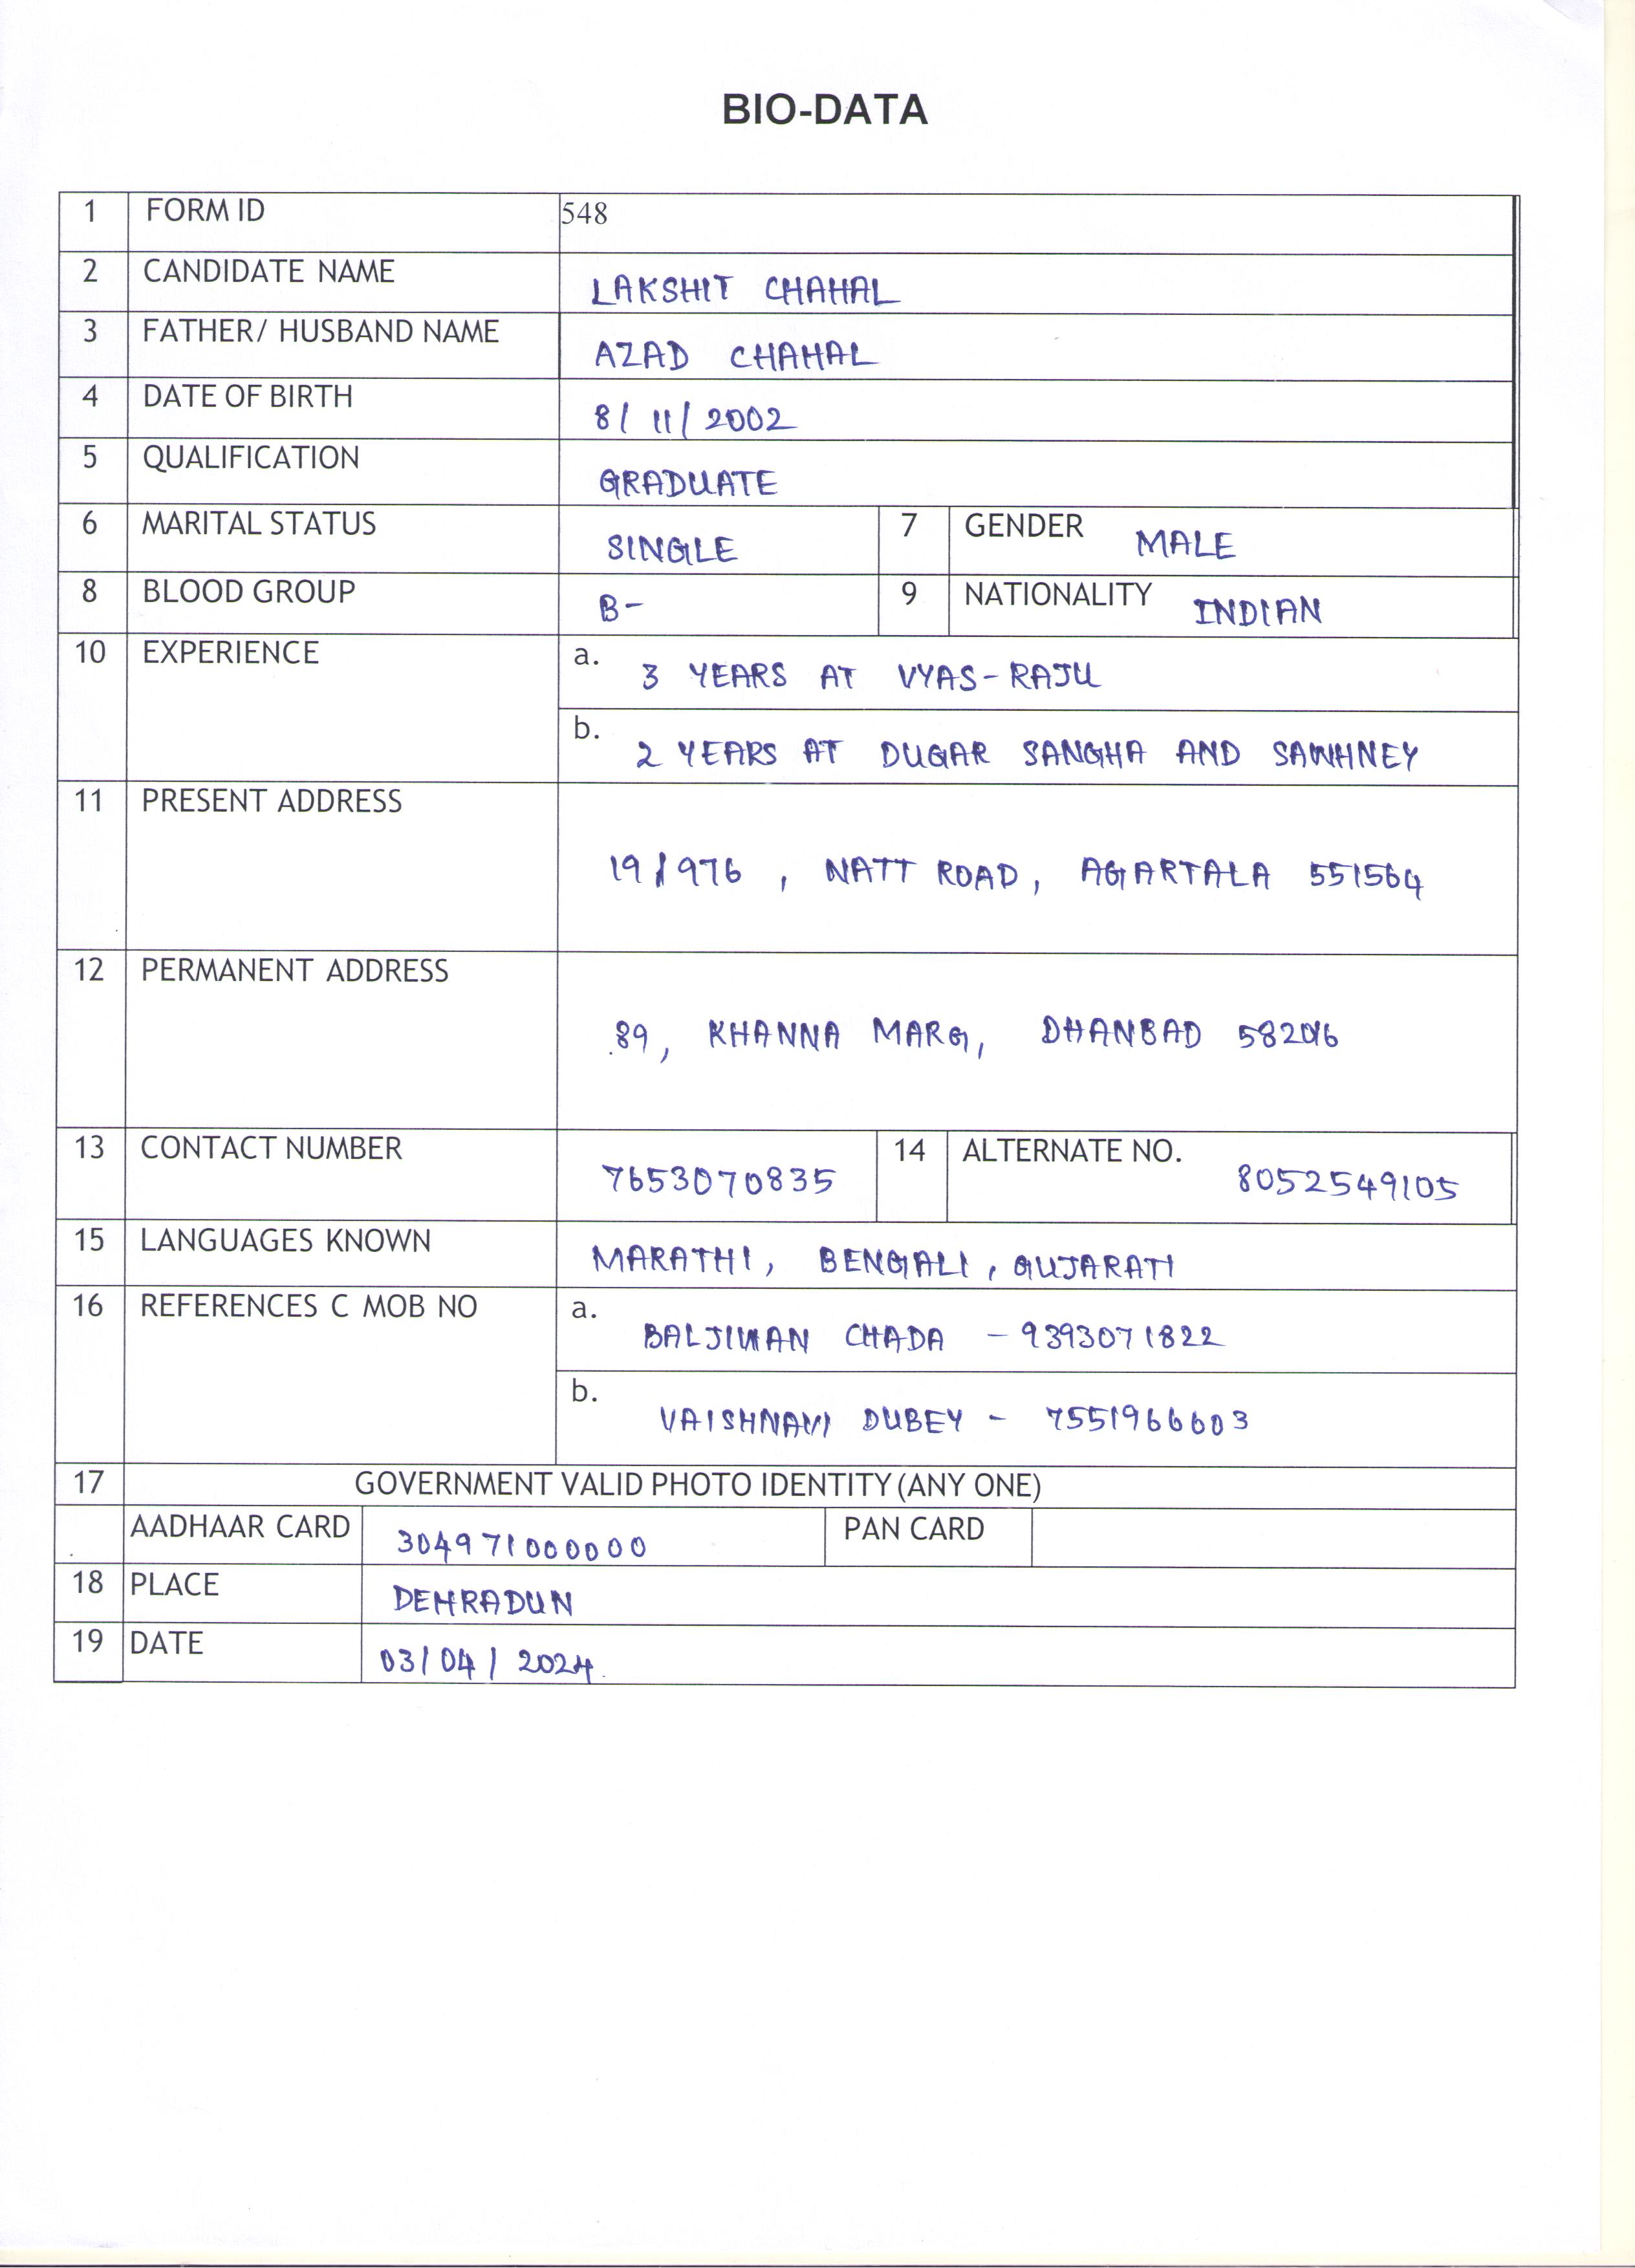 BIO-DATA
1 FORM ID 548
2 CANDIDATE NAME LAKSHIT CHAHAL
3 FATHER/ HUSBAND NAME AZAD CHAHAL
4 DATE OF BIRTH 8/11/2002
5 QUALIFICATION GRADUATE
6 MARITAL STATUS SINGLE 7 GENDER MALE
8 BLOOD GROUP B- 9 NATIONALITY INDIAN
10 EXPERIENCE a. 3 YEARS AT VYAS-RAJU
b. 2 YEARS AT DUGAR SANGHA AND SAWHNEY
11 PRESENT ADDRESS
19/976, NATT ROAD, AGARTALA 551564
12 PERMANENT ADDRESS
89, KHANNA MARG, DHANBAD
13 CONTACT NUMBER 7653070835 14 ALTERNATE NO. 8052549105
15 LANGUAGES KNOWN MARATHI, BENGALI, GUJARATI
16 REFERENCES C MOB NO a. BALJIWAN CHADA - 9393071822
b. VAISHNAVI DUBEY - 7551966603
17 GOVERNMENT VALID PHOTO IDENTITY (ANY ONE)
AADHAAR CARD 304971000000 PAN CARD
18 PLACE DEHRADUN
19 DATE 03/04/2024